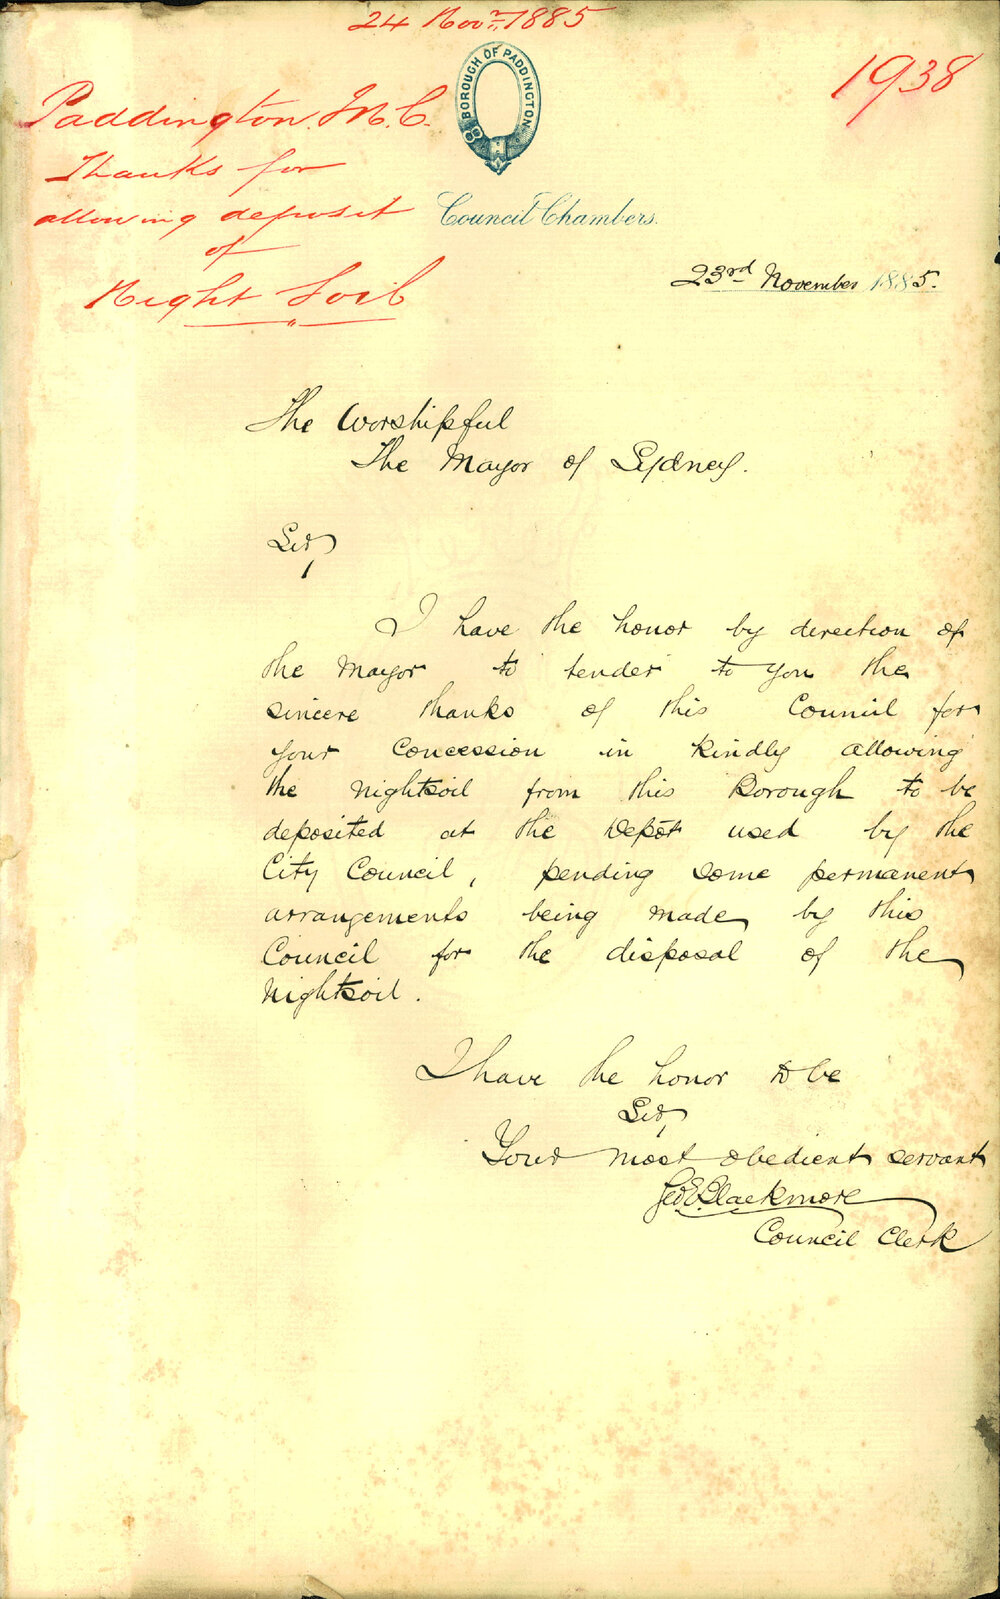 24 Novr. 1885
1938
BOROUGH OF PADDINGTON
Paddington. M. C.
Thanks for
allowing deposit
of
Night Soil
Council Chambers.
23rd November 1885.
The Worshipful
The Mayor of Sydney.
Sir,
I have the honor by direction of
the Mayor to tender to you the
sincere thanks of this Council for
your Concession in kindly allowing
the nightsoil from this Borough to be
deposited at the Depôt used by the
City Council, pending some permanent
arrangements being made by this
Council for the disposal of the
Nightsoil.
I have the honor to be
Sir,
Your most obedient servant
Geo E Blackmore
Council Clerk